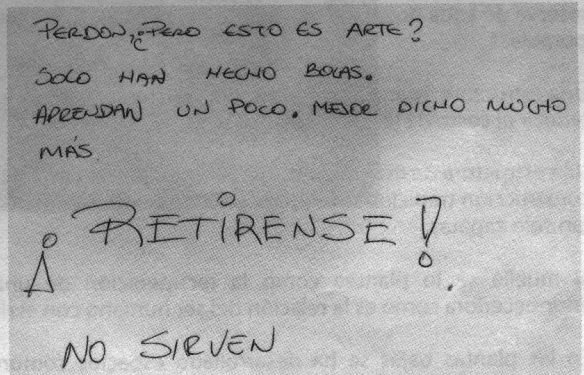 PERDON, ¿PERO ESTO ES ARTE?
SOLO HAN HECHO BOLAS.
APRENDAN UN POCO. MEJOR DICHO MUCHO
MÁS
¡RETÍRENSE!.
NO SIRVEN